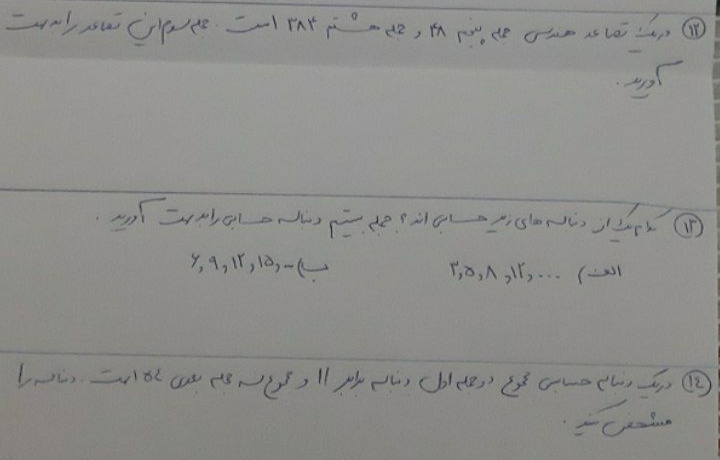 ۱۲) در یک تصاعد هندسی جمله پنجم ۴۸ و جمله هشتم ۳۸۴ است. جمله سوم این تصاعد را بدست
آورید.
۱۳) کدام یک از دنباله های زیر حسابی اند؟ جمله بیستم دنباله حسابی را بدست آورید.
الف) ۳,۵,۸,۱۲,... ب) ۶,۹,۱۲,۱۵,...
۱۴) در یک دنباله حسابی مجموع دو جمله اول دنباله برابر ۱۱ و مجموع سه جمله بعدی ۵۴ است. دنباله را
مشخص کنید.